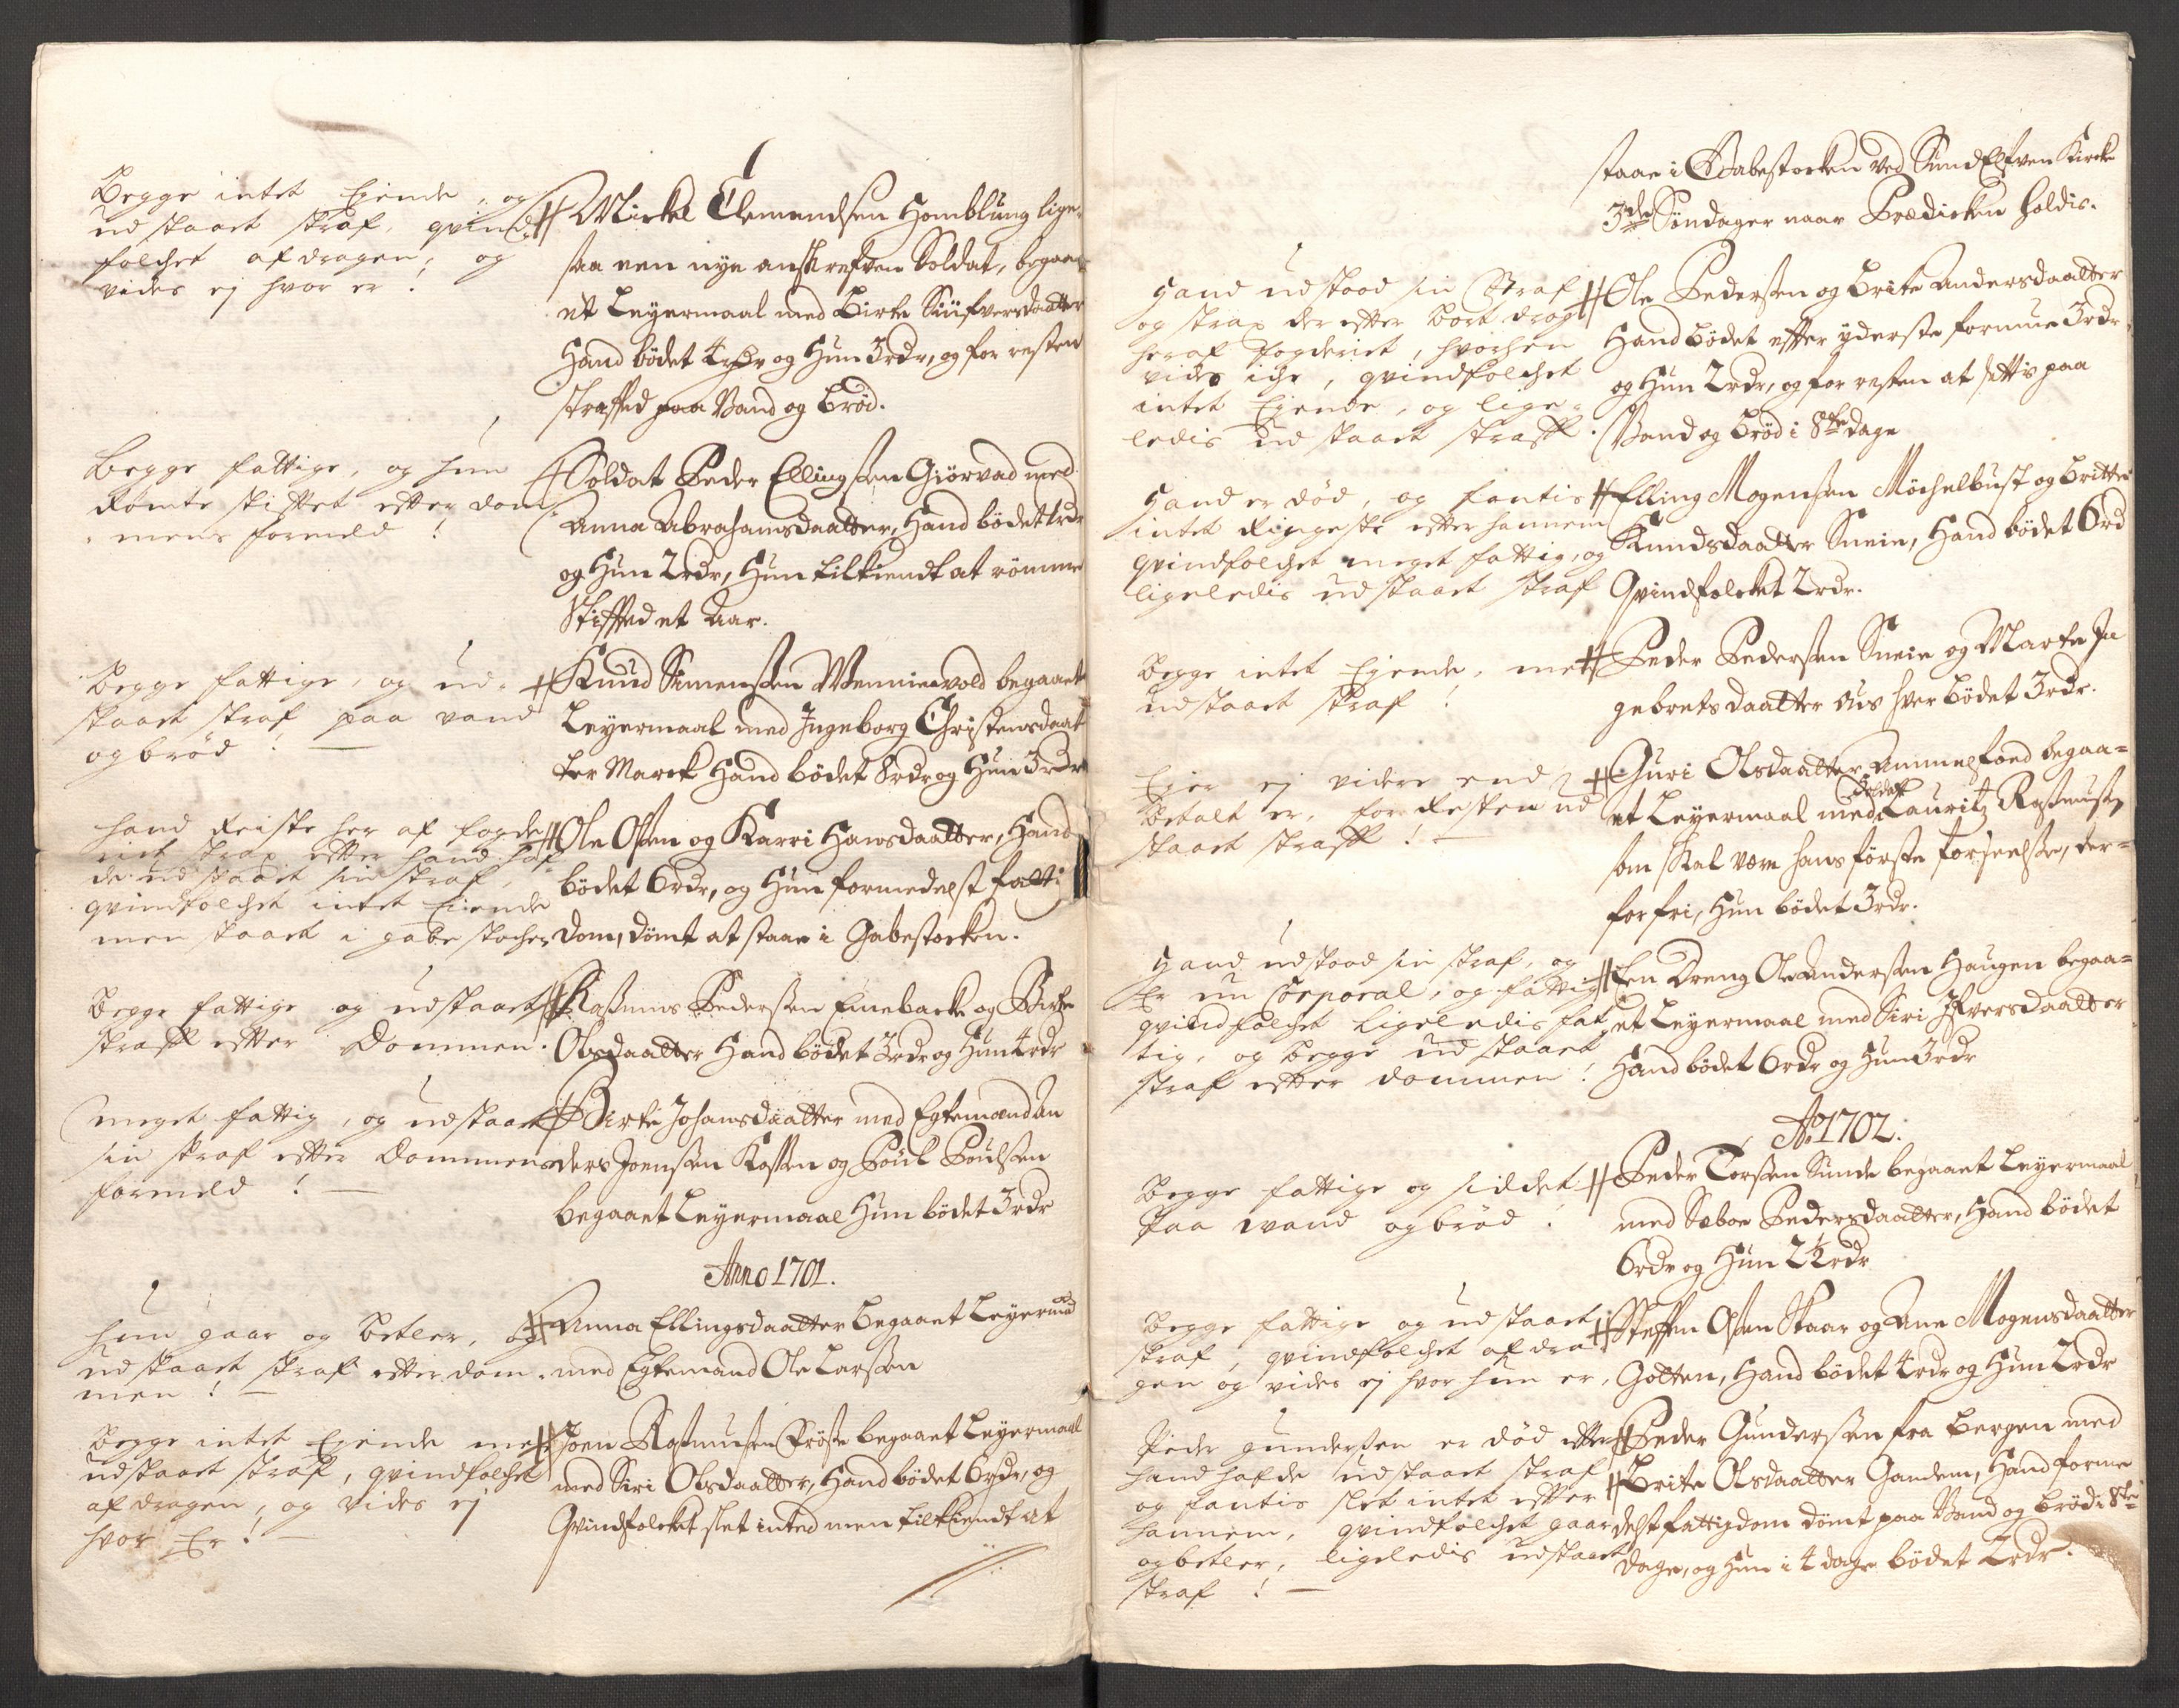 Begge intet Eiende, og
udstaart straf, qvind
folchet afdragen, og
vides ej hvor er!
# Mickel Clemendsen Homblung lige
saa een nye anskrefven Soldat, begaa
et Leyermaal med Birte Siufversdaatter
Hand bödet 4 rdr og Hun 3 rdr, og for resten
straffed paa Vand og Bröd.
Begge fattige, og hun
römte stiftet effter dom
mens formeld!
# Soldat Peder Ellingsen Giörvad med
Anna Abrahamsdaatter, Hand bödet 1 rdr
og Hun 2 rdr, Hun tilkiendt at römme
Stiffted et Aar.
Begge fattige, og ud-
staart straf paa vand
og bröd!
# Knud Simensen Wennievold begaaet
Leyermaal med Ingeborg Christensdaat
ter Marck Hand bödet 8 rdr og Hun 3 rdr
hand Reiste her af fogde
riet strax effter hand haf
de udstaart sin straf,
qvindfolchet intet Eiende
men staart i gabestochen
# Ole Olsen og Karri Hansdaatter, Hand
bödet 6 rdr, og Hun formedelst fatti
dom, dömt at staae i Gabestocken.
Begge fattige og udstaart
straff effter Dommen.
# Rasmus Pedersen Einebacke og Birte
Olsdaatter Hand bödet 3 rdr og Hun 4 rdr
meget fattig, og udstaart
sin straf effter Dommens
formeld!
# Birte Johansdaatter med Egtemænd An
ders Joensen Kossen og Poul Poulsen
begaaet Leyermaal Hun bödet 3 rdr
Anno 1701.
hun gaar og betler, og
udstaart straf effter dom
men!
# Anna Ellingsdaatter Begaaet Leyermaal
med Egtemand Ole Larsen
Begge intet Eiende men
udstaart straf, qvindfolchet
afdragen, og vides ej
hvor Er!
# Joen Rasmusen Fröste begaaet Leyermaal
med Siri Olsdaatter, Hand bödet 6 rdr, og
Qvindfolcket slet inted men tilkiendt at
staae i Gabestocken ved Sundelfven Kircke
3de Söndager naar Prædicken holdis.
Hand udstood sin Straf
og strax der effter bort drog
heraf fogderiet, hvorhen
vides iche, qvindfolchet
intet Eiende, og lige-
ledis udstaart straff.
# Ole Pedersen og Brite Andersdaatter
Hand bödet effter yderste formue 3 rdr
og Hun 2 rdr, og for resten at settis paa
Vand og Bröd i 8te dage
Hand er död, og fantis
intet Ringeste effter hannem
qvindfolchet meget fattig, og
ligeledis udstaart straf
# Elling Mogensen Möchelbust og Britte
Knudsdaatter Sneie, Hand bödet 6 rd
Qvindfolcket 2 rdr.
Begge intet Eiende, men
udstaart straf!
# Peder Pedersen Sneie og Marte In
gebretsdaatter Aus hver bödet 3 rdr.
Eier ej videre end
Betalt er, for Resten ud
staart straff!
# Guri Olsdaatter Ammelfoed begaa=
et Leyermaal med Soldat Lauritz Rasmusen
som skal være hans förste forseelse, der=
for fri, Hun bödet 3 rdr.
Hand udstood sin straf, og
Er nu Corporal, og fattig
qvindfolchet ligeledis fat
tig, og begge udstaart
straf effter dommen!
# Een Dreng Ole Andersen Haugen begaa=
et Leyermaal med Siri Ifversdaatter
Hand bödet 6 rdr og Hun 3 rdr
Ao 1702.
Begge fattige og siddet
Paa wand og bröd!
# Peder Torsen Sunde begaaet Leyermaal
med Seboe Pedersdaatter, Hand bödet
6 rdr og Hun 2½ rdr
Begge fattige og udstaart
straf, qvindfolchet afdra
gen og vides ej hvor hun er,
# Steffen Olsen Skaar og Ane Mogensdaatter
Gotten, Hand bödet 4 rdr og Hun 2 rdr
Peder gundersen er död effter
hand hafde udstaart straf
og fantis slet intet effter
hannem, qvindfolchet gaar
og betler, ligeledis udstaart
straf!
# Peder Gundersen fra Bergen med
# Brite Olsdaatter Gandem, Hand forme
delst fattigdom dömt paa Vand og bröd i 8te
dage, og Hun i 4 dage bödet 2 rdr.